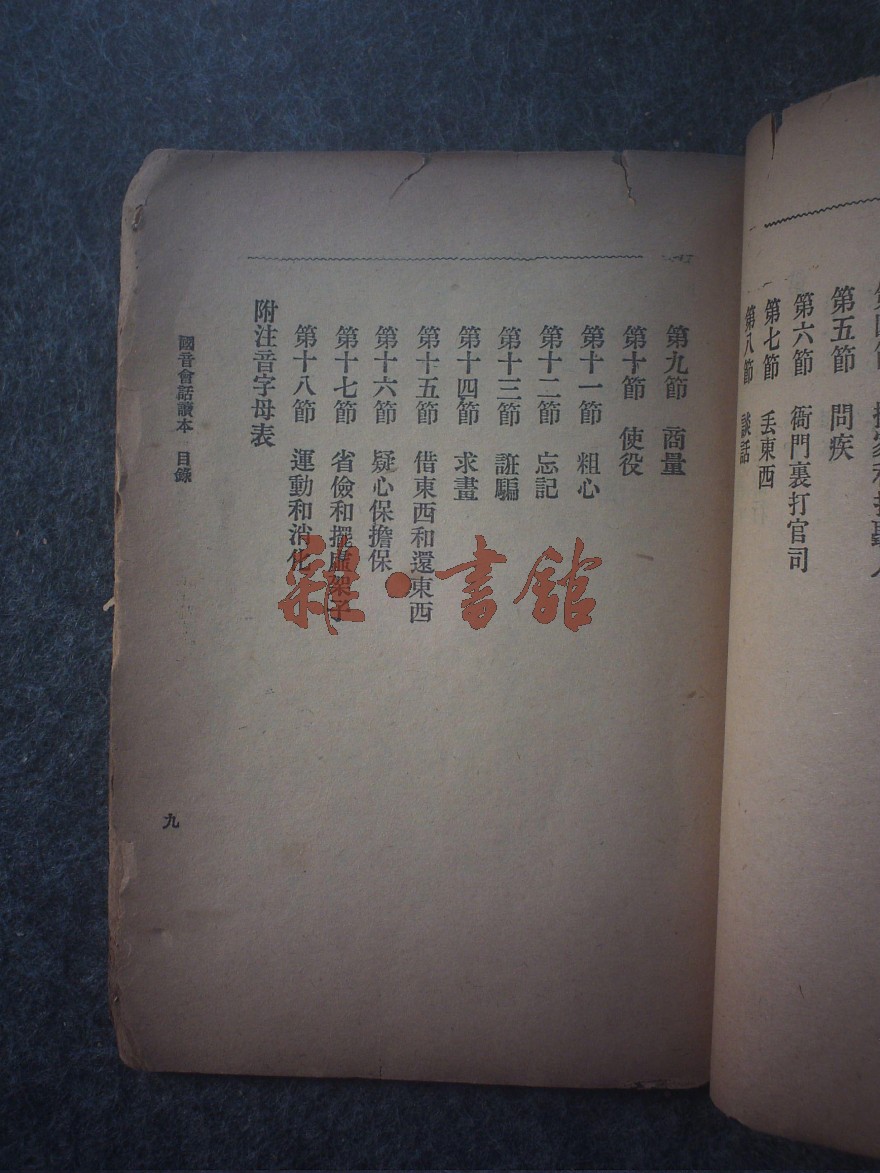 第五節　問疾
第六節　衙門裏打官司
第七節　丢東西
第八節　談話
第九節　商量
第十節　使役
第十一節　粗心
第十二節　忘記
第十三節　誑騙
第十四節　求畫
第十五節　借東西和還東西
第十六節　疑心保擔保
第十七節　省儉和擺虛架子
第十八節　運動和消化
附注音字母表
國音會話讀本　目錄
九
雜·書館